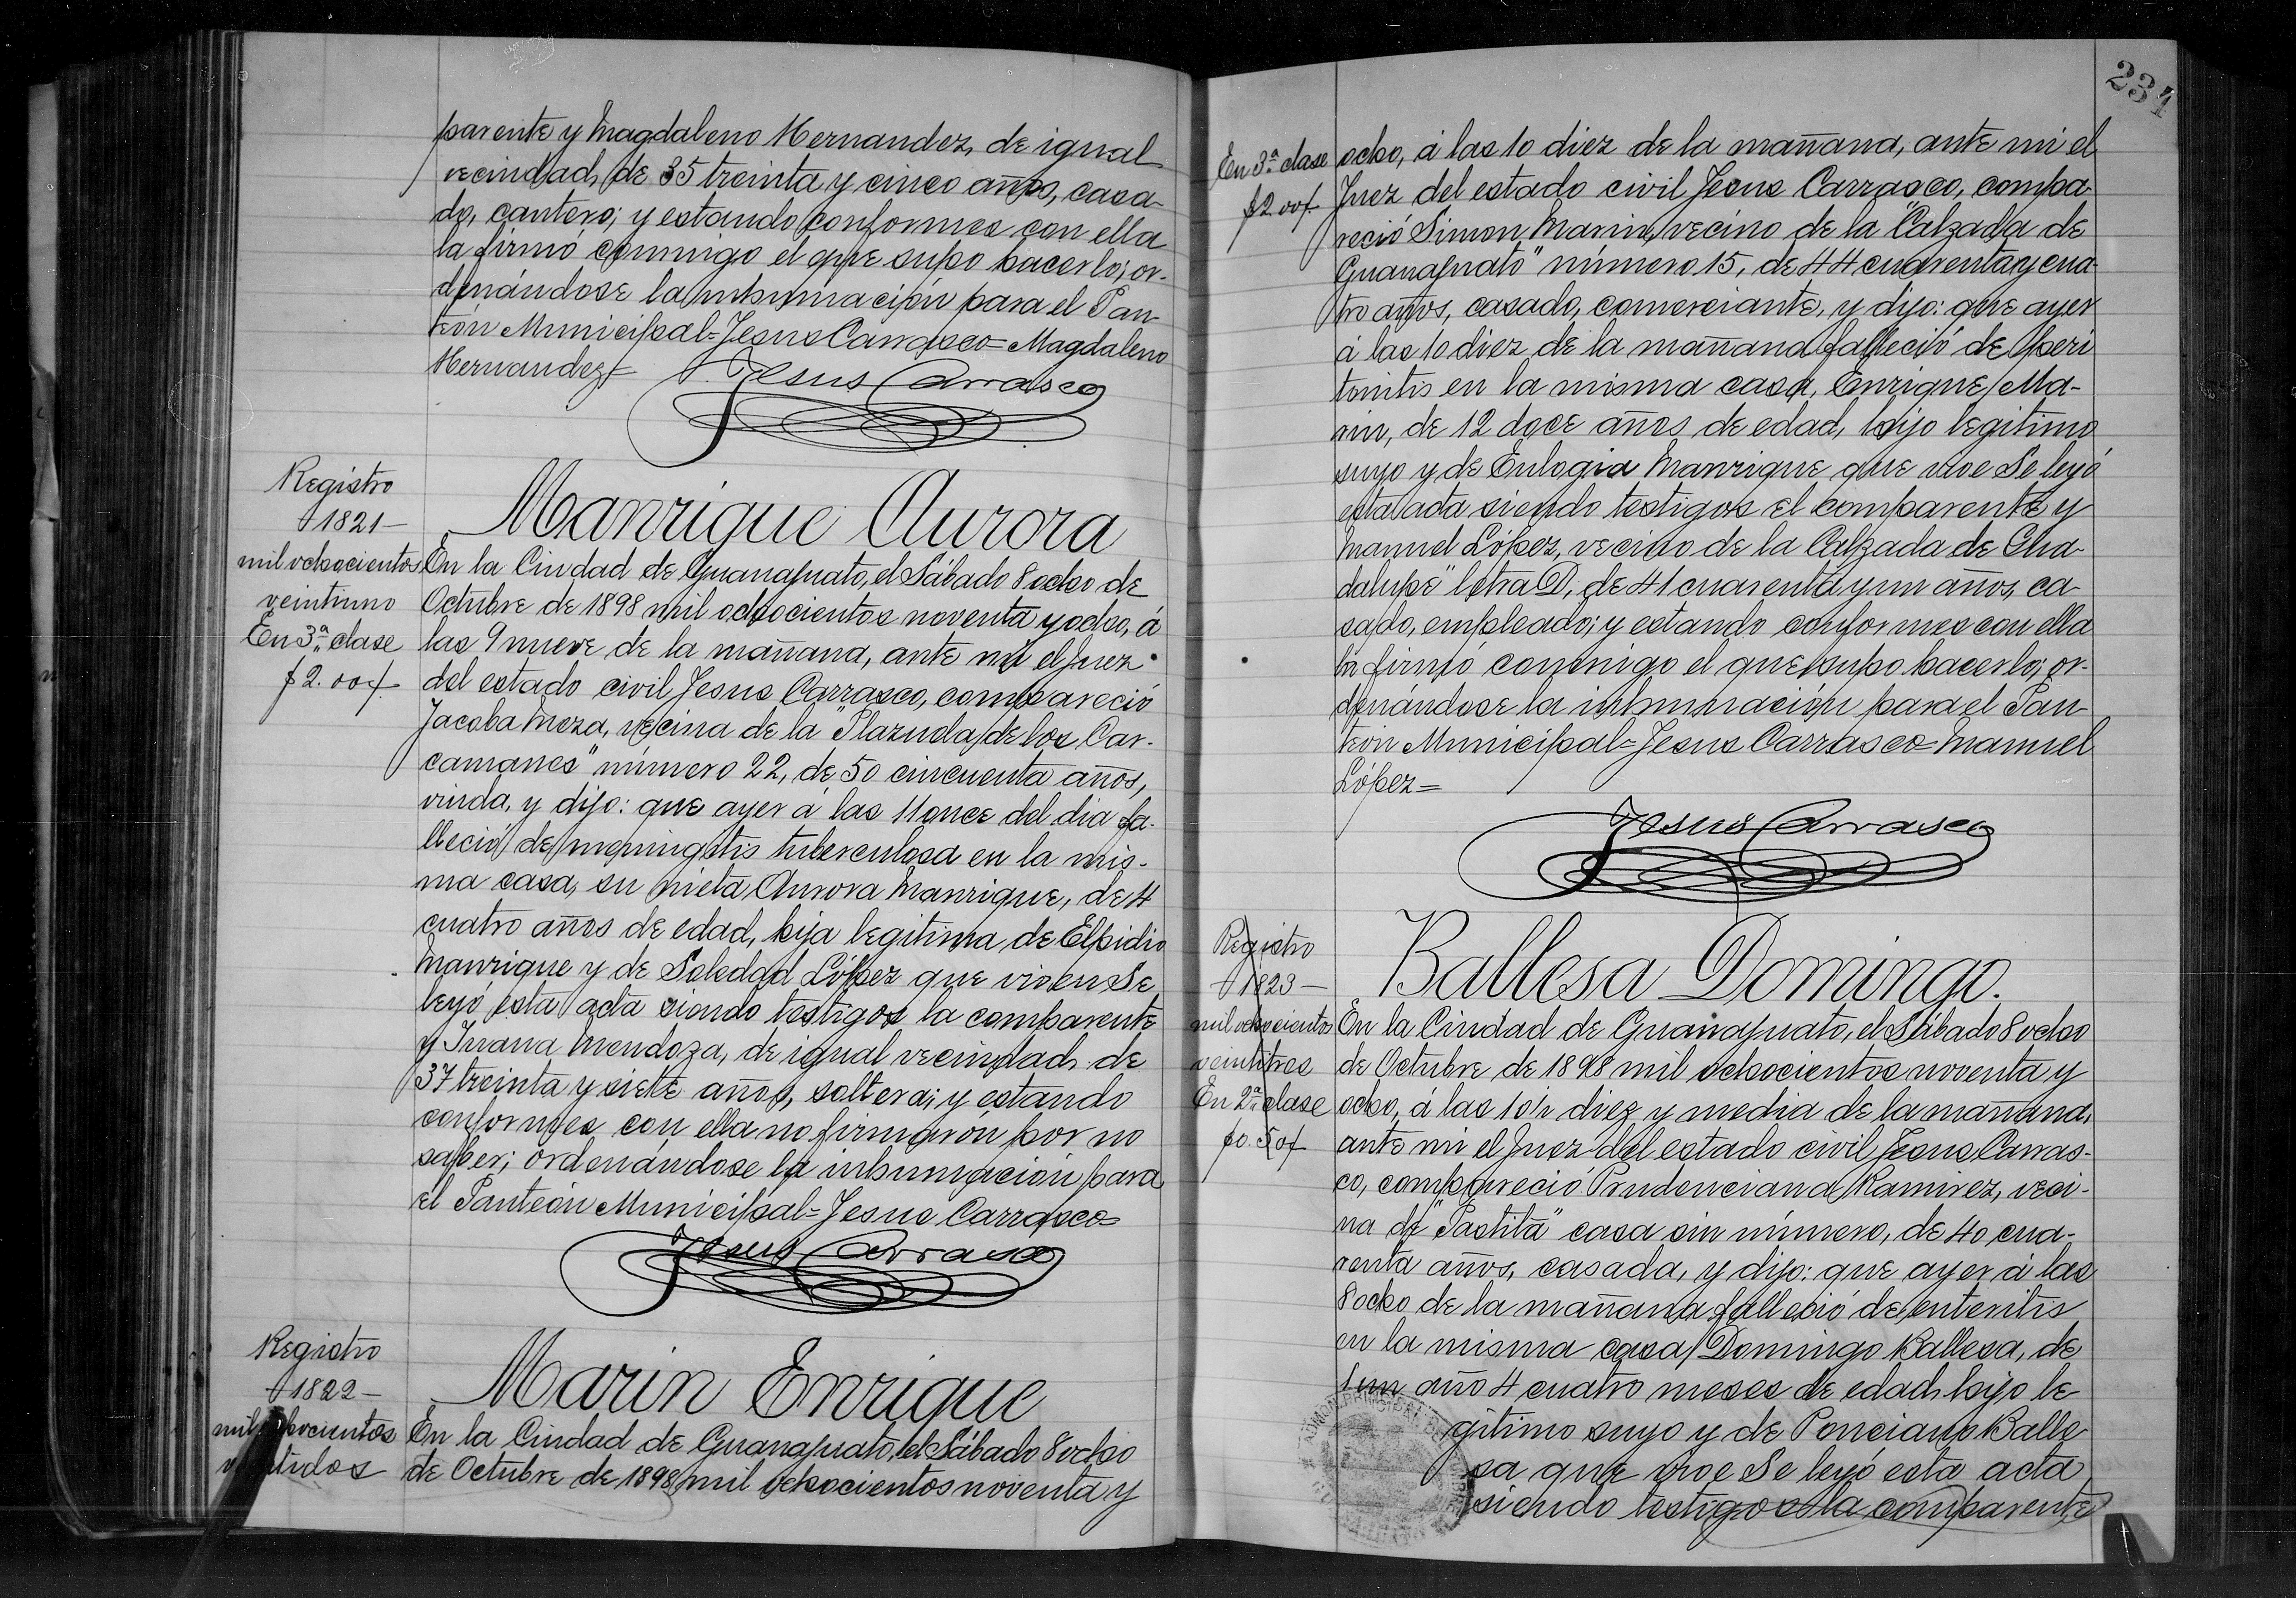 parente y Magdaleno Hernandez, de igual
vecindad, de 35 treinta y cinco años, casa-
do, cantero; y estando conformes con ella
la firmó conmigo el que supo hacerlo; or-
denándose la inhumación para el Pan-
teón Municipal=Jesus Carrasco=Magdaleno
Hernandez=
Jesus Carrasco
Registro
1821—
mil ochocientos
veintiuno
En 3ª clase
$2.00
Manrique Aurora
En la Ciudad de Guanajuato, el Sábado 8 ocho de
Octubre de 1898 mil ochocientos noventa y ocho, á
las 9 nueve de la mañana, ante mi el Juez
del estado civil Jesus Carrasco, compareció
Jacoba Meza, vecina de la "Plazuela de los Car-
camanes" número 22, de 50 cincuenta años,
viuda, y dijo: que ayer á las 11 once del dia fa-
lleció de meningitis tuberculosa en la mis-
ma casa, su nieta Aurora Manrique, de 4
cuatro años de edad, hija legitima de Elpidio
Manrique y de Soledad López que viven Se
leyó esta acta siendo testigos la comparente
y Juana Mendoza, de igual vecindad, de
37 treinta y siete años, soltera; y estando
conformes con ella no firmaron por no
saber; ordenándose la inhumación para
el Panteón Municipal=Jesus Carrasco=
Jesus Carrasco
Registro
1822—
mil ochocientos
veintidos
Marin Enrique
En la Ciudad de Guanajuato, el Sábado 8 ocho
de Octubre de 1898 mil ochocientos noventa y
231
En 3ª clase
$2.00
ocho, á las 10 diez de la mañana, ante mi el
Juez del estado civil Jesus Carrasco, compa-
reció Simon Marin, vecino de la "Calzada de
Guanajuato" número 15, de 44 cuarenta y cua-
tro años, casado, comerciante, y dijo: que ayer
á las 10 diez de la mañana falleció de peri
tonitis en la misma casa, Enrique Ma-
rin, de 12 doce años de edad, hijo legitimo
suyo y de Eulogia Manrique que vive Se leyó
esta acta siendo testigos el comparente y
Manuel López, vecino de la Calzada de Gua-
dalupe" letra D, de 41 cuarenta y un años, ca-
sado, empleado; y estando conformes con ella
la firmó conmigo el que supo hacerlo; or-
denándose la inhumación para el Pan-
teon Municipal=Jesus Carrasco=Manuel
López=
Jesus Carrasco
Registro
1823—
mil ochocientos
veintitres
En 2ª clase
$0.50
Ballesa Domingo.
En la Ciudad de Guanajuato, el Sábado 8 ocho
de Octubre de 1898 mil ochocientos noventa y
ocho, á las 10½ diez y media de la mañana,
ante mi el Juez del estado civil Jesus Carras-
co, compareció Prudenciana Ramirez, veci-
na de "Pastita" casa sin número, de 40 cua-
renta años, casada, y dijo: que ayer á las
8 ocho de la mañana falleció de enteritis
en la misma casa Domingo Ballesa, de
1 un año 4 cuatro meses de edad, hijo le-
gitimo suyo y de Ponciano Balle
sa que vive Se leyó esta acta
siendo testigos la comparente